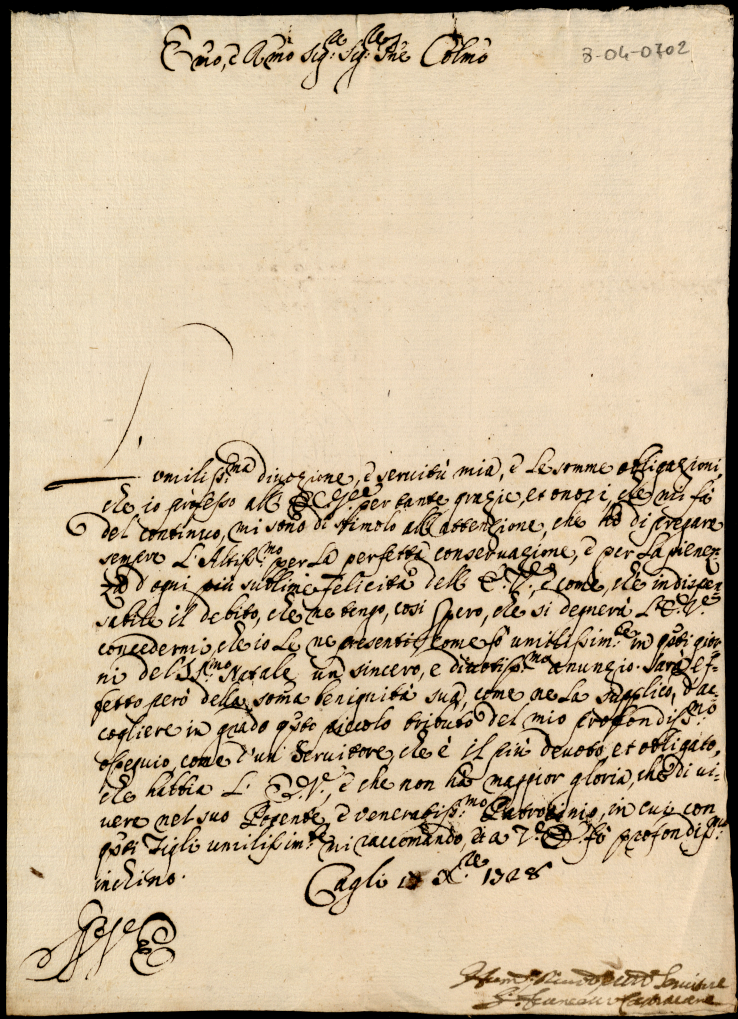 Emo, è Rmo Sig.re Sig.re Pne Colmo
8-04-0702
L'umiliss.ma divozione, è servitù mia, è le somme obligazioni,
che io professo all' E.V. per tante grazie, et onori, che mi fà
del continuo, mi sono di stimolo all' attenzione, che hò di pregare
sempre L'Altiss.mo per la perfetta conservazione, è per la pienez-
za d'ogni più sublime Felicità dell' E.V., è come, che indispen-
sabile il debito, che ne tengo, così spero, che si degnerà L'E.V.
concedermi, che io Le ne presenti, come fò umilissim.te in q.sti gior-
ni del SS.mo Natale un sincero, e divotiss.mo annunzio. Sarà ef-
fetto però della soma benignità sua, come ne La supplico, d'ac-
cogliere in grado q.sto piccolo tributo del mio profondiss.mo
ossequio, come d'un Servitore, che è il più devoto, et obligato,
che habbia L' E.V., è che non hà maggior gloria, che di vi-
vere nel suo Potente, è veneratiss.mo Patrocinio, in cui con
q.sti Figli umilissim.te mi raccomando, et a V.E. fò profondiss.mo
inchino.
Cagli X.re 1728
Servitore